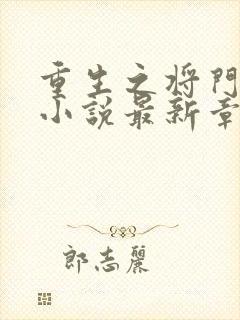 重生之将门
小说最新章
郎志麗